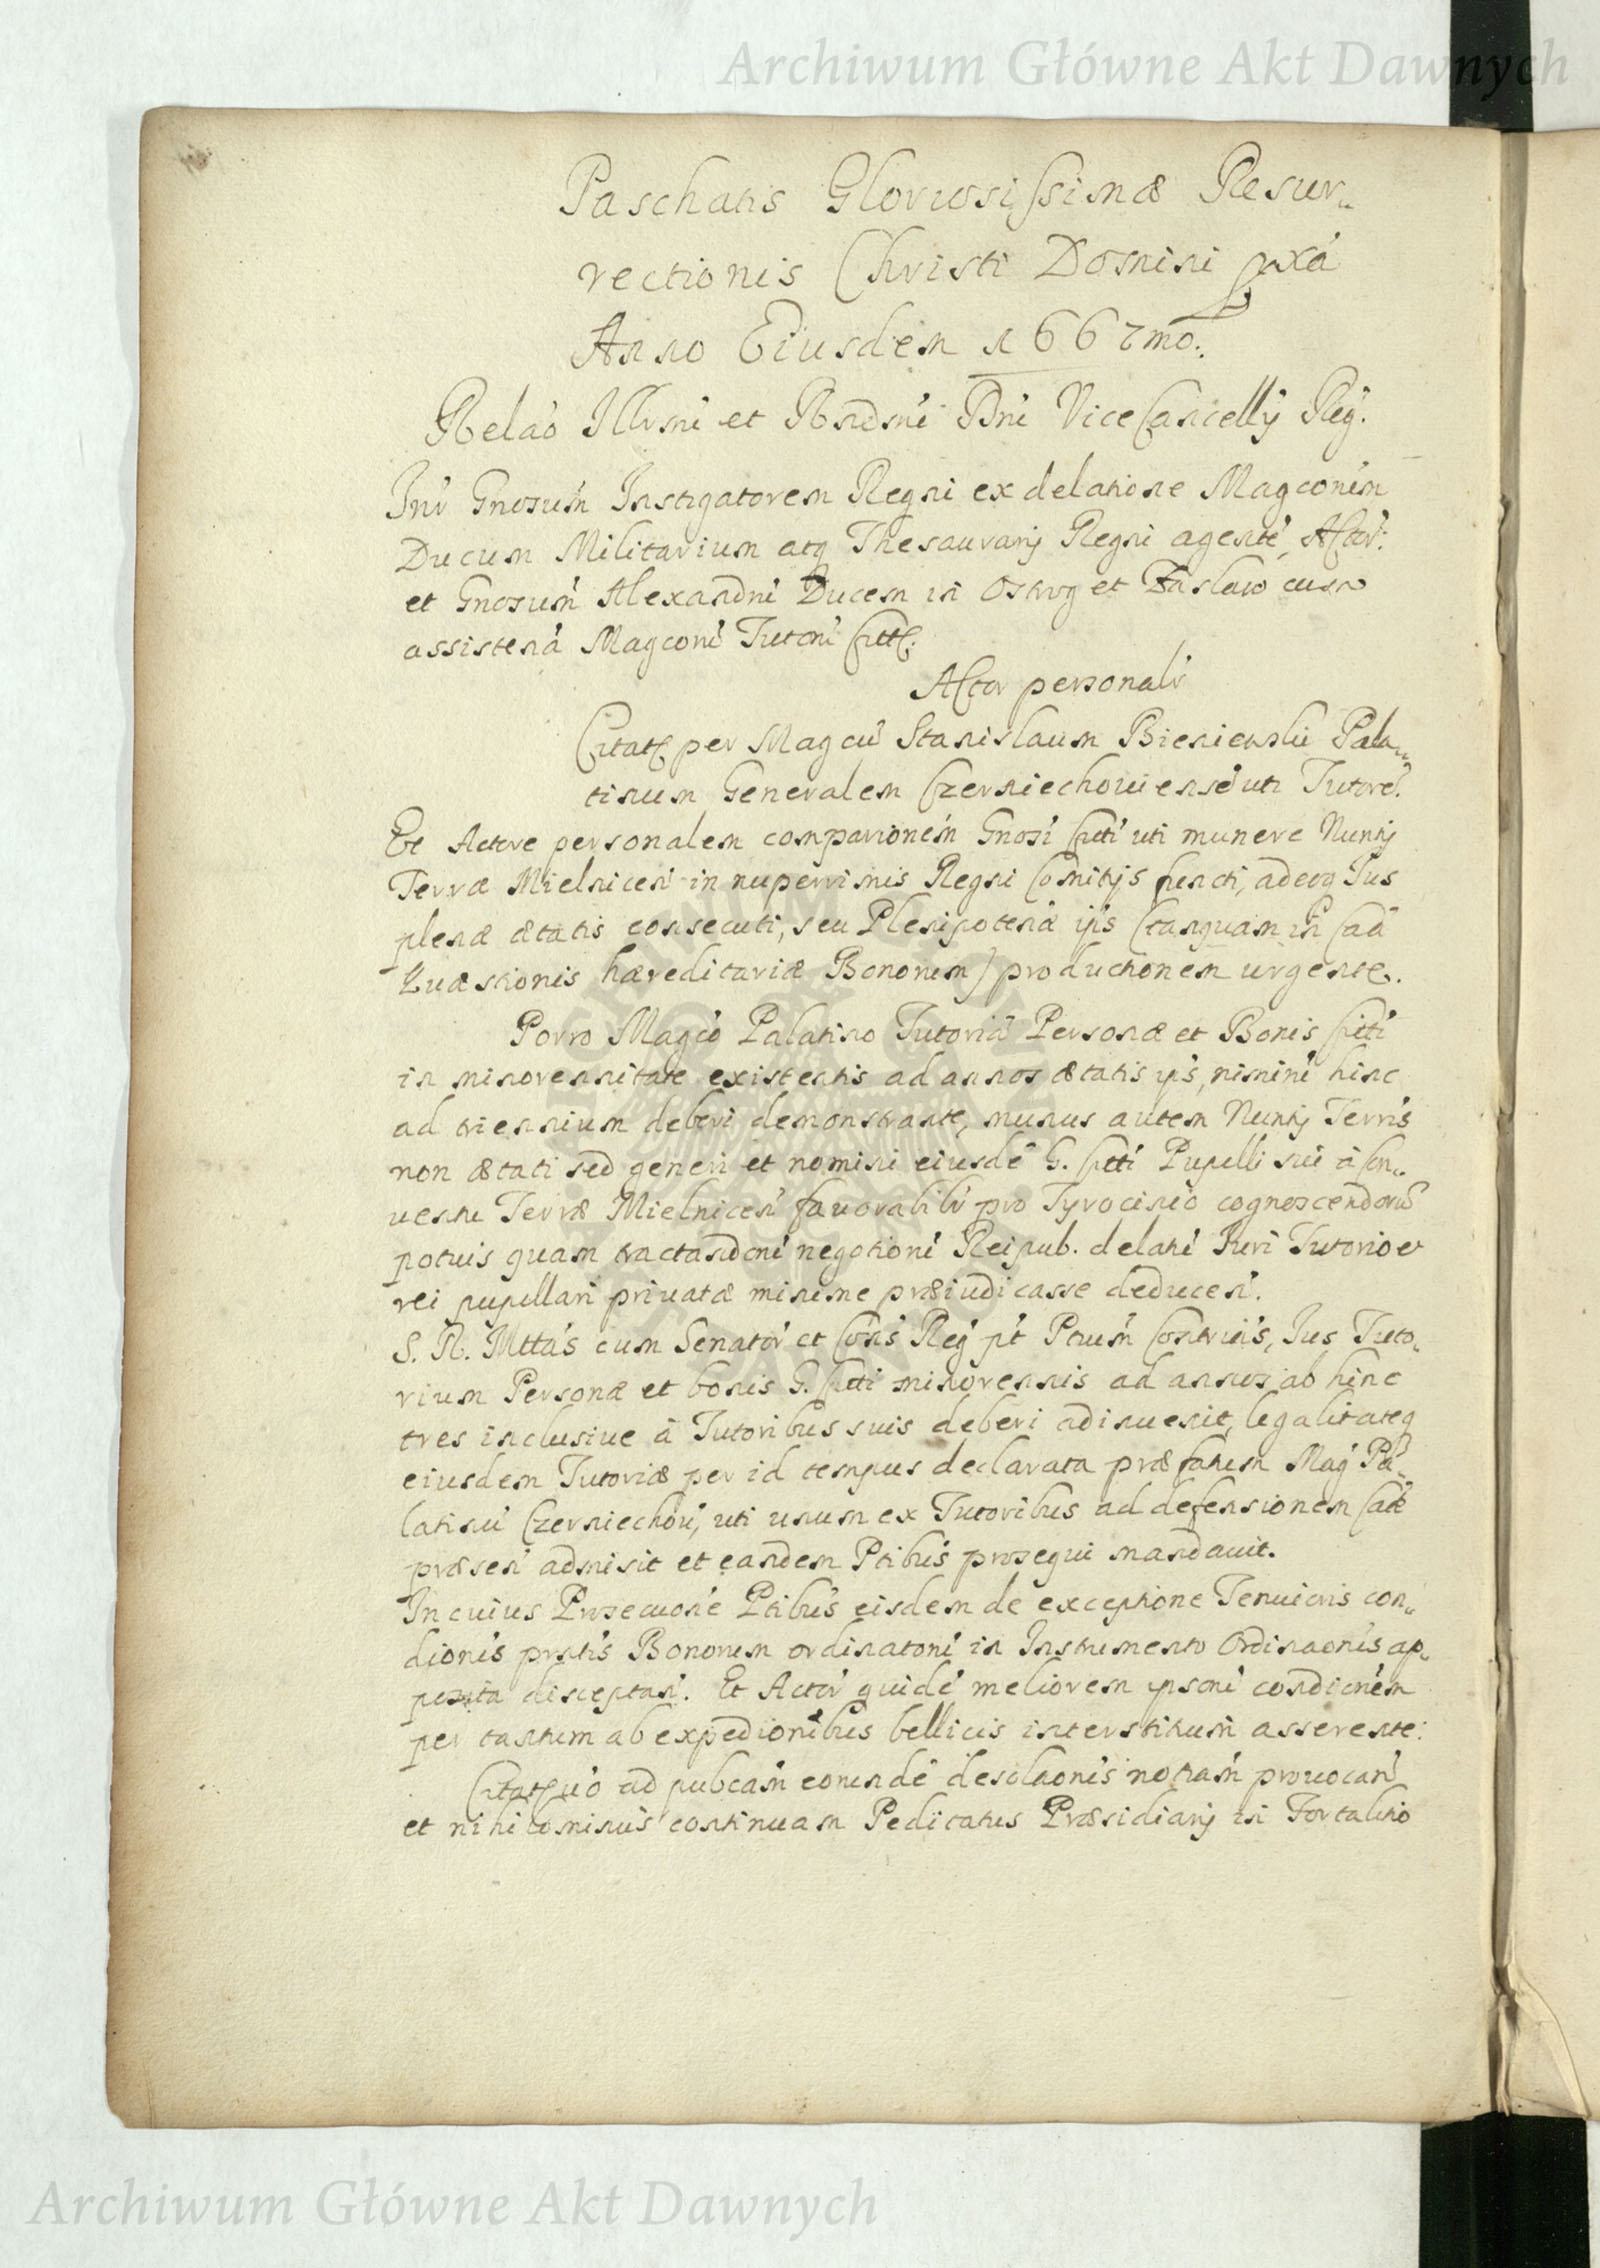 Archiwum Główne Akt Dawnych
Paschatis Gloriosissimæ Resur„
rectionis Christi Domini pxá
Anno Eiusdem 1667mo.
Relaó Illrsmi et Rndsmi Dni ViceCancellÿ Reg.
Inr Gnosum Instigatorem Regni ex delatione Magconím
Ducum Militarium atq Thesaurarÿ Regni agente, Actor:
et Gnosum Alexandrú Ducem in Ostrog et Zaslaw cum
assistená Magconi Tutoni Citt.
Actor personalr
Citatg per Magcú Stanislaum Bieniewski Pala„
tinum Generalem Czerniechouiense uti Tutore.
Et Actore personalem comparionem Gnosi Citti uti munere Nuntÿ
Terræ Mielnicen in nuperrimis Regni Comitÿs functi, adeoq Jus
plenæ ætatis consecuti, seu Plenipotená ipis (tanquam in Cad
Quæstionis hæreditariæ Bonorum) productionem urgente.
Porro Magco Palatino Tutoriá Personæ et Bonis Citti
in minorennitate existentis ad annos ætatis ipis, nimiru hinc
ad triennium deberi demonstrante, munus autem Nuntÿ Terris
non ætati sed generi et nomini eiusdé G. Citti Pupilli sui à Con„
uentu Terræ Mielnicen fauorabilr pro Tyrocinio cognoscendorú
potuis quam tractandoní negotioní Reipub. delatú Juri Tutorio et
rei pupillari priuatæ minime præiudicasse deducen.
S. R. Mttás cum Senator et Consr Reg pt Ptium Contruis, Jus Tuto„
rium Personæ et bonis G. Citti minorennis ad annos ab hinc
tres inclusiue à Tutoribus suis deberi adinuenit, legalitateq
eiusdem Tutoriæ per id tempus declarata præfatum Mag Pa„
latinú Czerniechóu, uti unum ex Tutoribus ad defensionem Cæ
præsen admisit et eandem Ptibus prosequi mandauit.
In cuius Prosecuone Ptibus eisdem de exceptione Tenuioris con„
dionis prntis Bonorum ordinatoní in Instrumento Ordinaonis ap„
posita disceptan. Et Actor quidé meliorem ipsoní condicném
per tantum ab expedionibus bellicis interstitium asserente:
Citatg uó ad pubcam eorundé desolaonis notiam prouocan
et nihilominus continuam Peditatus Præsidiarÿ in Fortalitio
Archiwum Główne Akt Dawnych